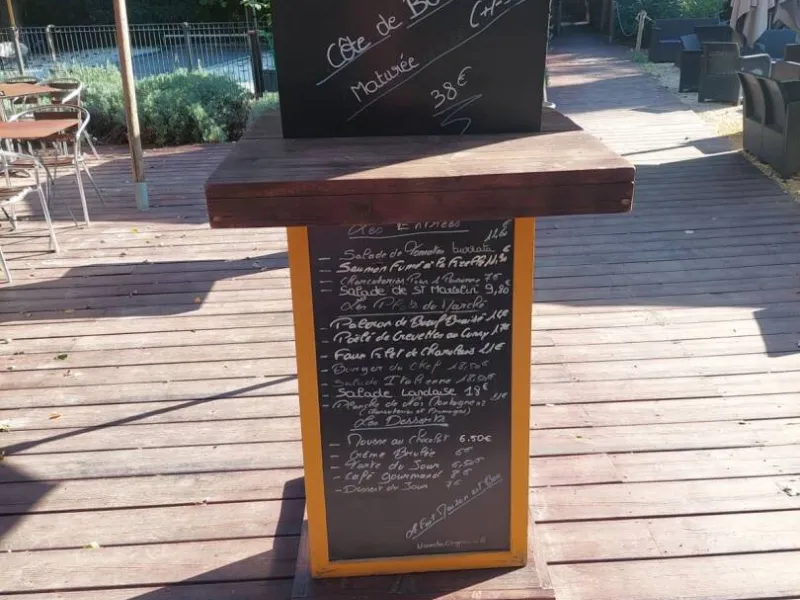 Côte de
Maturée
38€
Les Entrées
- Salade de Tomates burrata €
- Saumon Fumé à la Ficelle
- Charcuteries Pour 1 Personne 7€
- Salade de St Marcelin 9,80
Les Plats du Marché
- Paleron de Bœuf Braisé 14€
- Poêlé de Crevettes au Curry 17€
- Faux Filet de Charolais 21€
- Burger du Chef 18,50€
- Salade Italienne 18,50€
- Salade Landaise 18€
- Planche de
Les Desserts
- Mousse au chocolat 6.50€
- Crème Brulée 6€
- Tarte du Jour 6,50€
- Café gourmand 8€
- Dessert du Jour 7€
Le Fait Maison est Bon